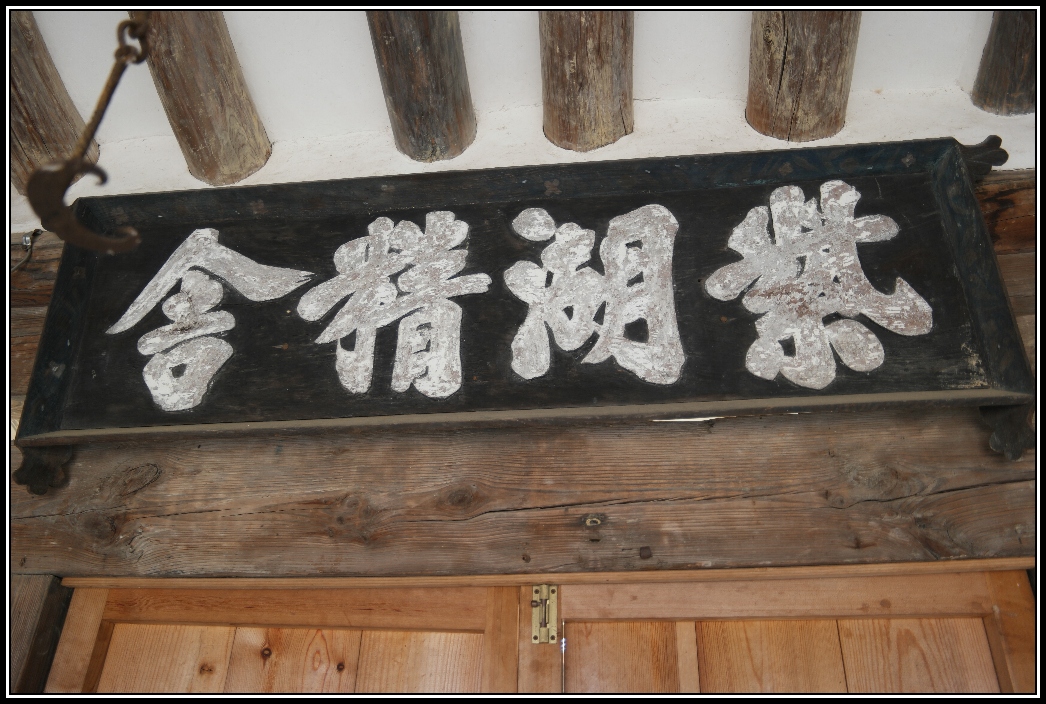 紫湖精舍